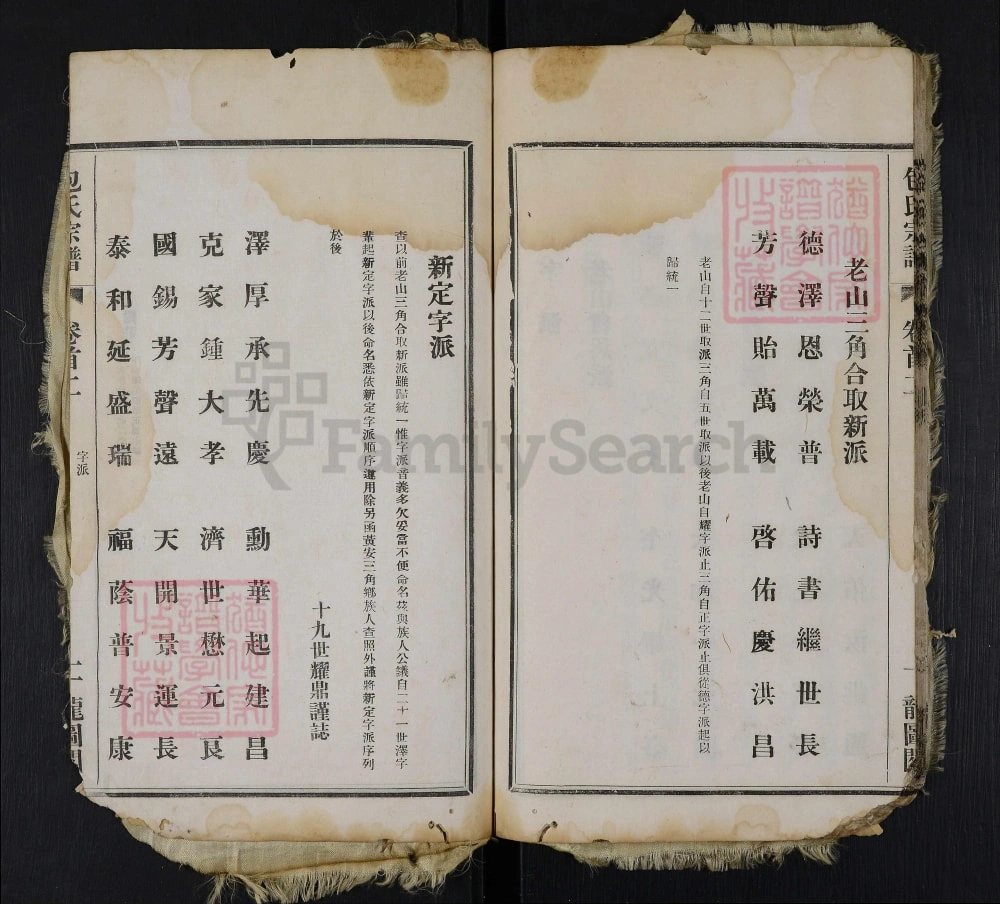 包氏宗譜
卷首二
龍圖閣
老山三角合取新派
德澤恩榮普詩書繼世長
芳聲貽萬載啓佑慶洪昌
老山自十二世取派三角自五世取派以後老山自耀字派止三角自正字派止俱從德字派起以
歸統一
新定字派
查以前老山三角合取新派雖歸統一惟字派音義多欠妥當不便命名茲與族人公議自二十一世澤字
輩起新定字派以後命名悉依新定字派順序遞用除另函黃安三角鄉族人查照外謹將新定字派序列
於後
十九世耀鼎謹誌
澤厚承先慶勳華起建昌
克家鍾大孝濟世懋元良
國錫芳聲遠天開景運長
泰和延盛瑞福蔭普安康
包氏宗譜
卷首二
字派
二
龍圖閣
FamilySearch